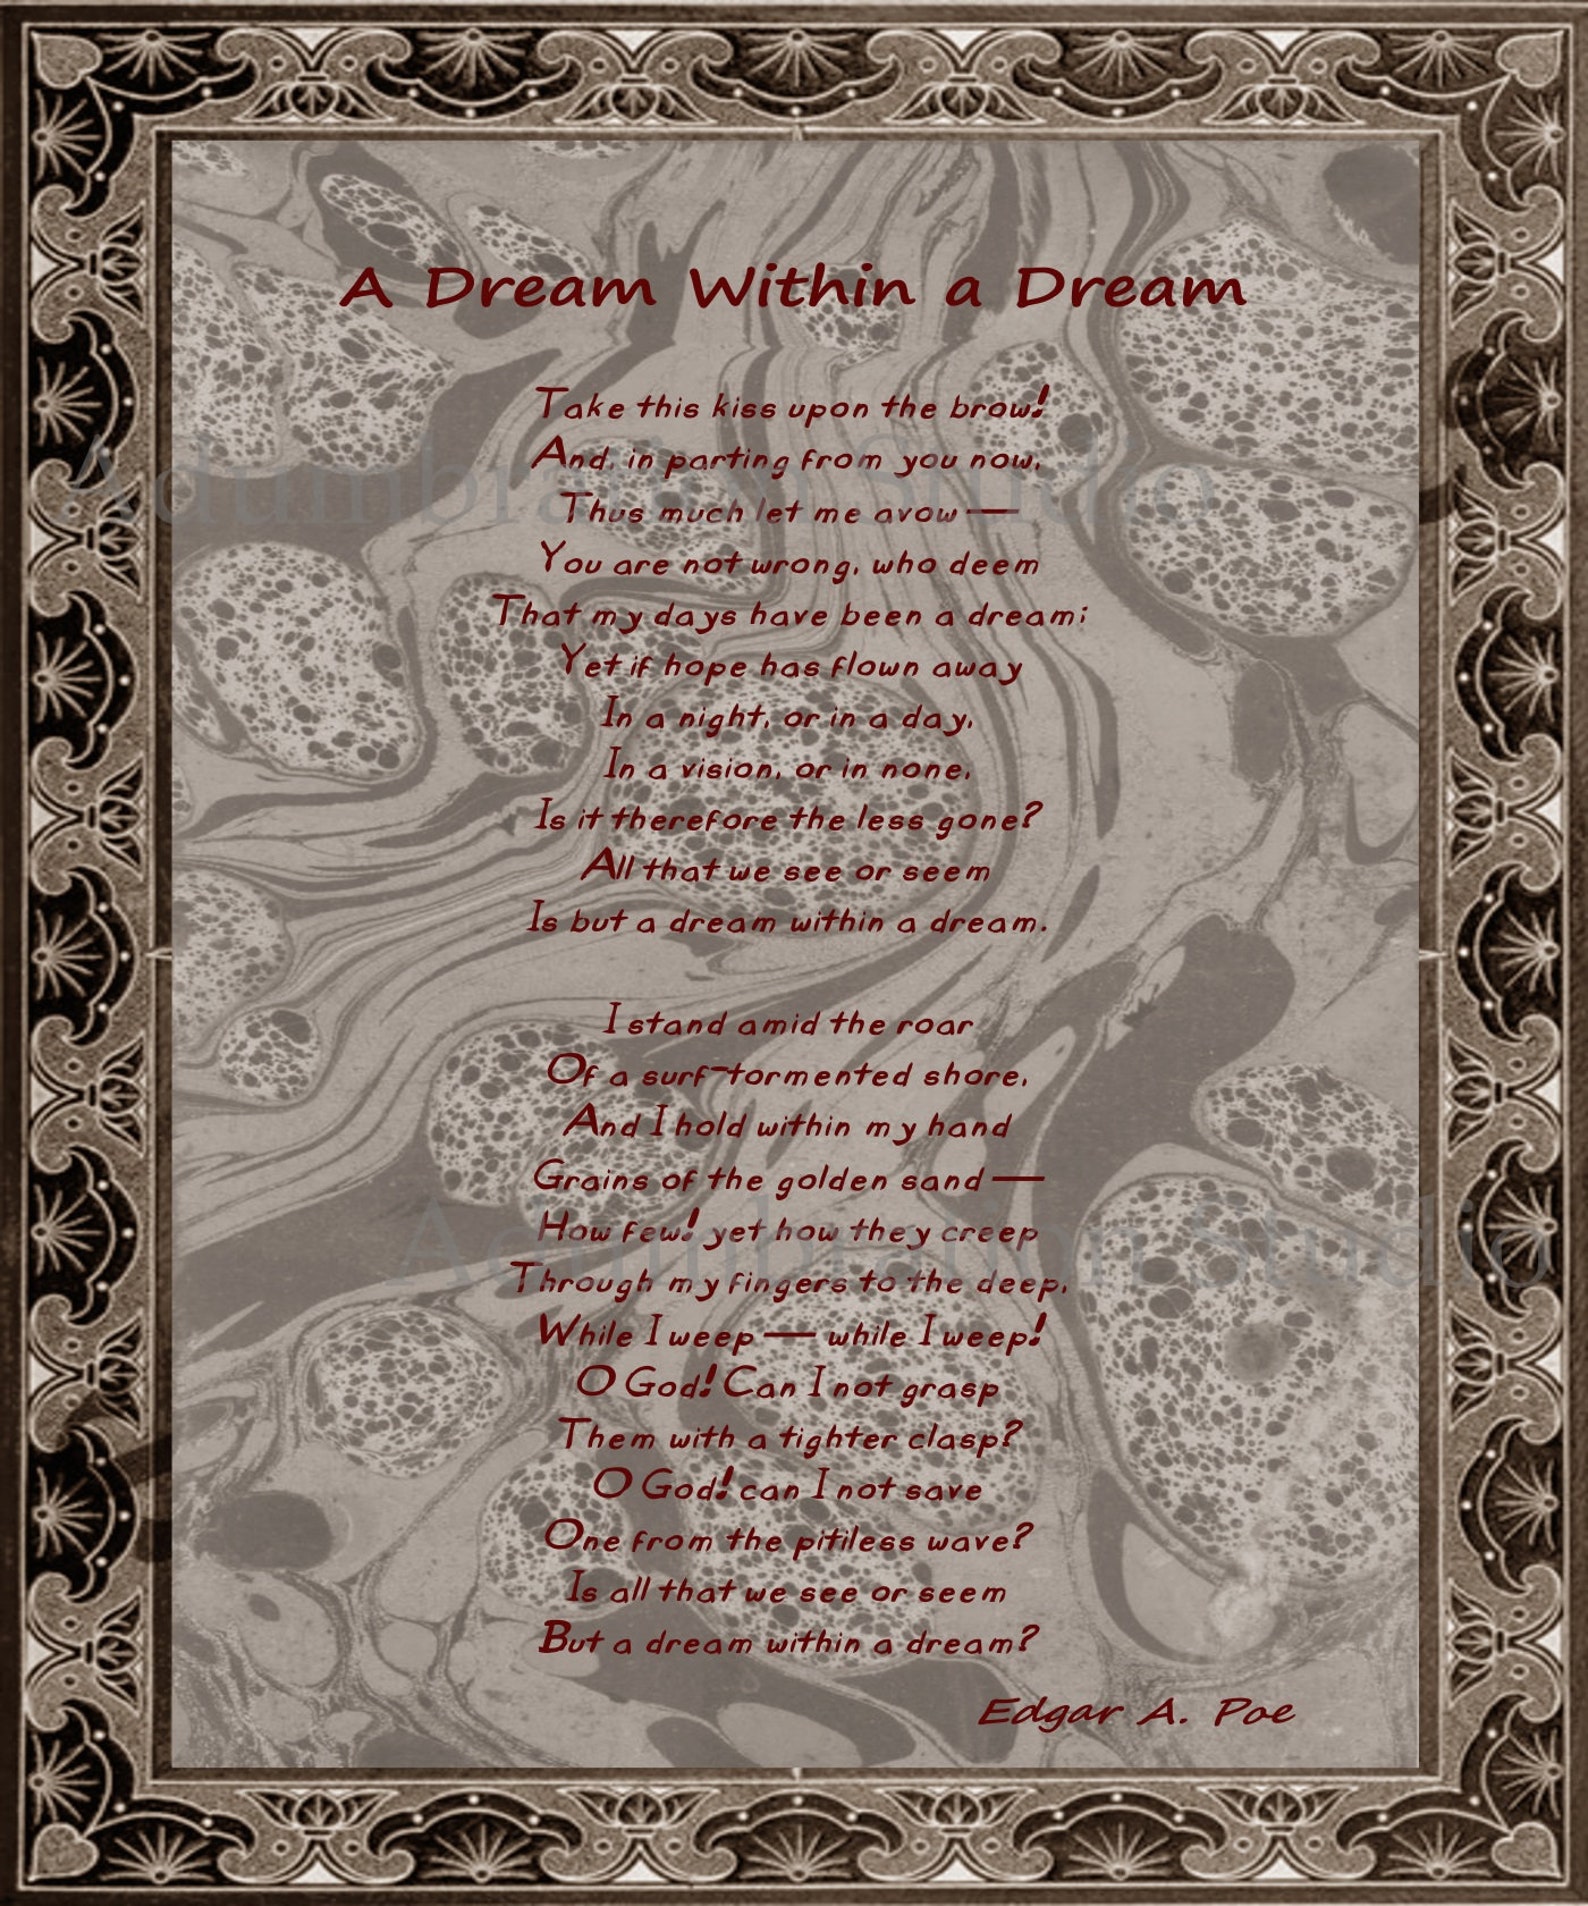 A Dream Within a Dream
Take this kiss upon the brow!
And, in parting from you now,
Thus much let me avow —
You are not wrong, who deem
That my days have been a dream;
Yet if hope has flown away
In a night, or in a day,
In a vision, or in none,
Is it therefore the less gone?
All that we see or seem
Is but a dream within a dream.
I stand amid the roar
Of a surf-tormented shore,
And I hold within my hand
Grains of the golden sand —
How few! yet how they creep
Through my fingers to the deep,
While I weep — while I weep!
O God! Can I not grasp
Them with a tighter clasp?
O God! can I not save
One from the pitiless wave?
Is all that we see or seem
But a dream within a dream?
Edgar A. Poe
Adumbration Studio
Adumbration Studio